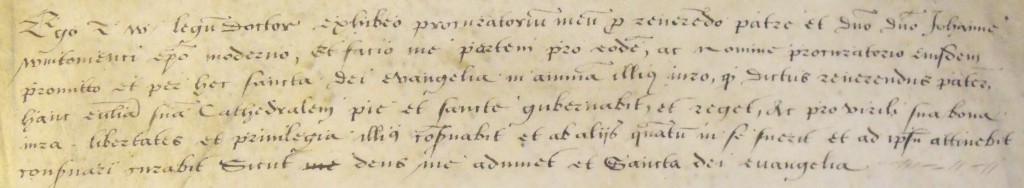 Ego T W legū doctor exhibeo procuratoriū meū p reverēdo patre et dno dno Johanne
wintoniensi epō moderno, Et facio me partem pro eodē, ac nomine procuratorio eiusdem
promitto et per hec sancta dei evangelia in animā illiq iuro, q dictus reverendus pater,
hanc eccliā suā Cathedralem pie et sancte gubernabit, et reget, Ac pro virili sua bona
iura libertates et privilegia illiq cōsvabit et ab alijs quātū in se fuerit et ad ipsū attinebit
consvari curabit Sicut me deus me adiuvet et Sancta dei evangelia